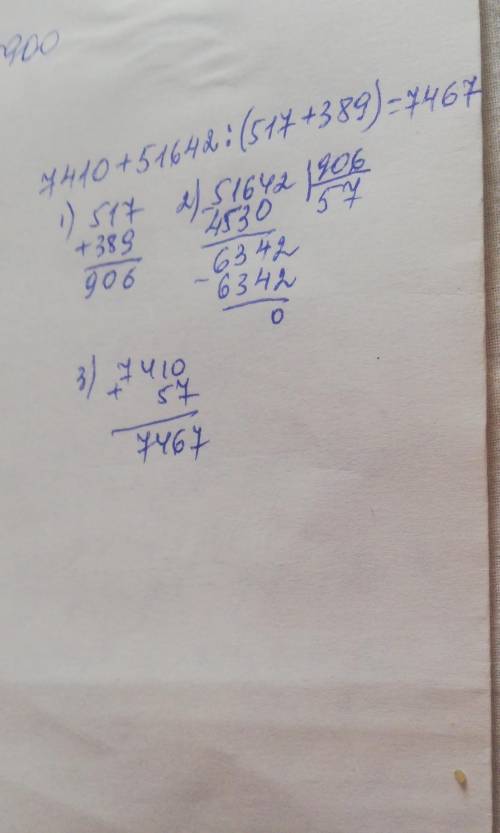 900
7410+51642:(517+389)=7467
1) 517
+389
906
2) 51642 |906
4530 57
6342
-6342
0
3) 7410
+ 57
7467